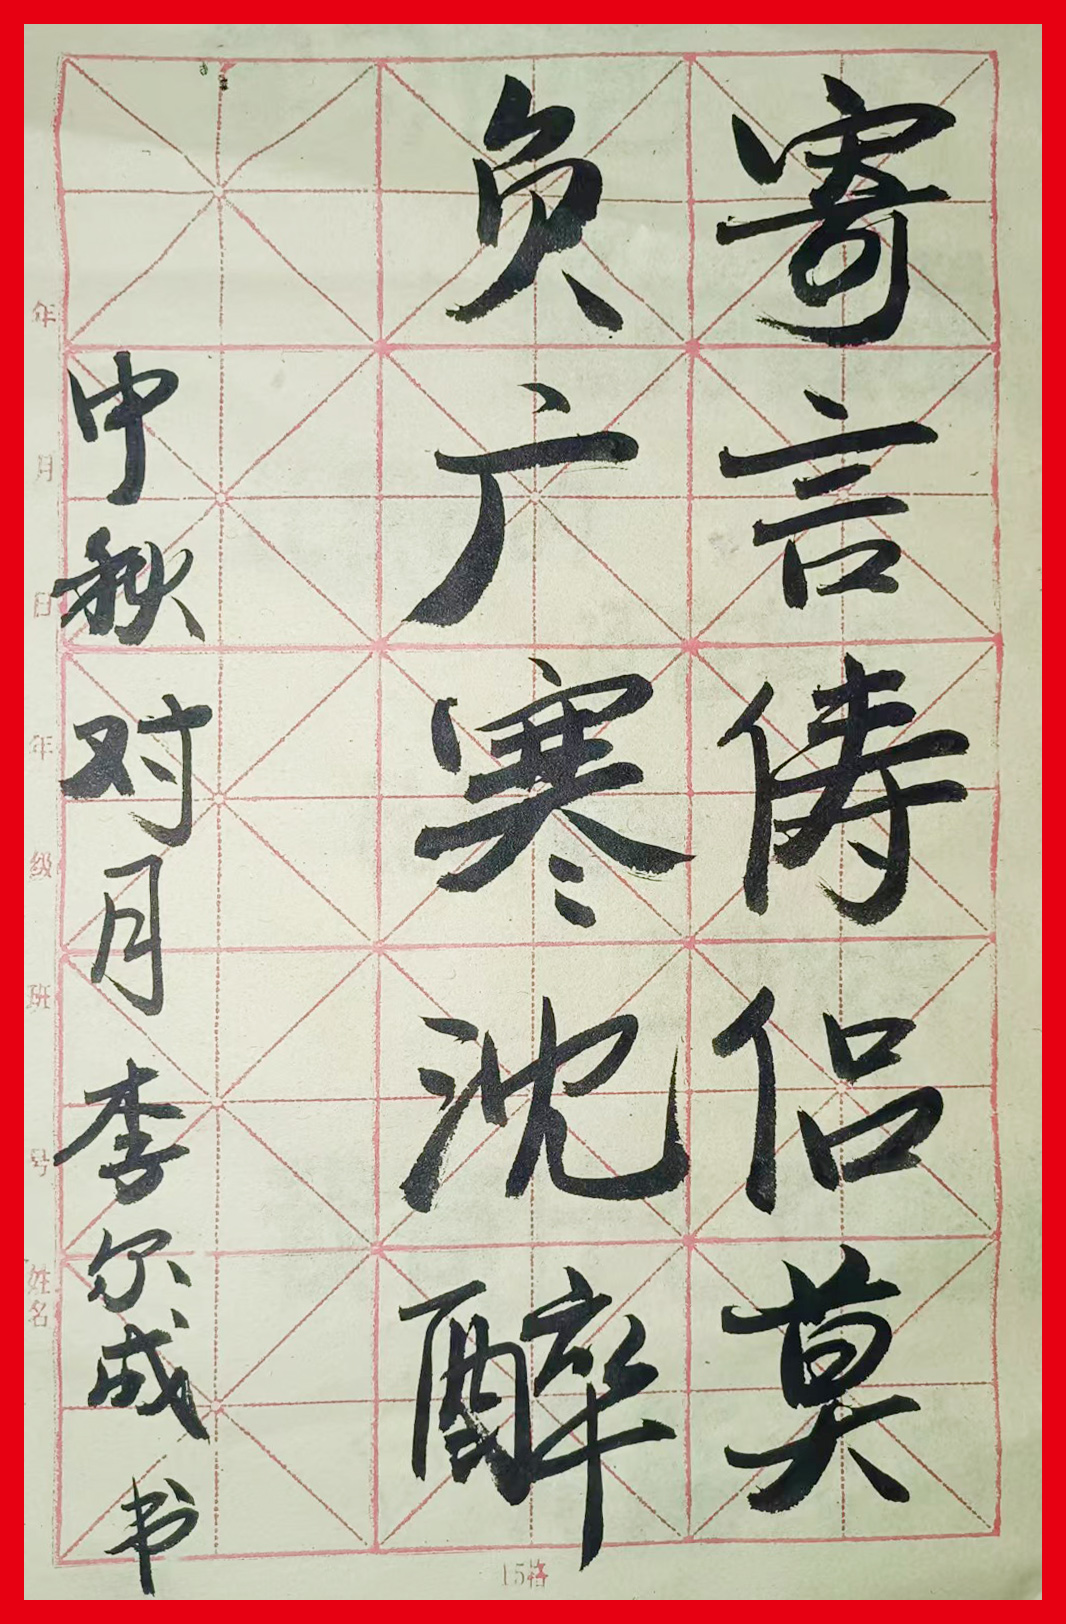 寄言俦侣莫
负广寒沈醉
中秋对月李尔成书
年月日年级班号姓名
15格